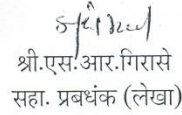 श्री.एस.आर.गिरासे
सहा. प्रबधंक (लेखा)